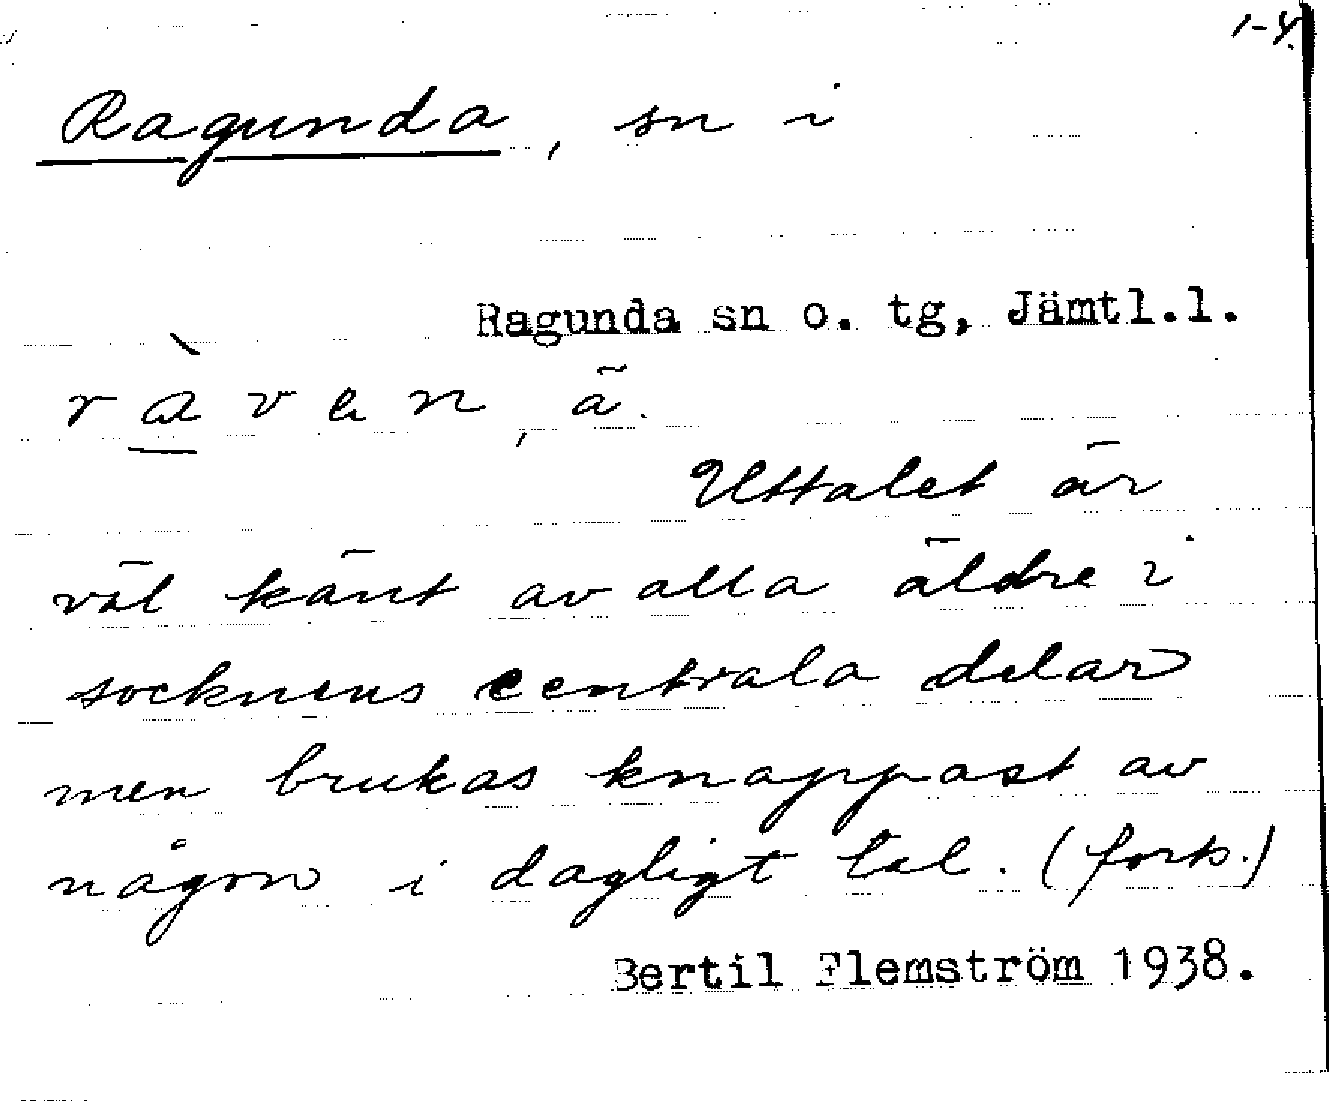 1-4.
Ragunda, sn i
Ragunda sn o. tg, Jämtl.l.
r à v e n, ã.
Uttalet är
väl känt av alla äldre i
socknens centrala delar
men brukas knappast av
någon i dagligt tal. (forts.)
Bertil Flemström 1938.